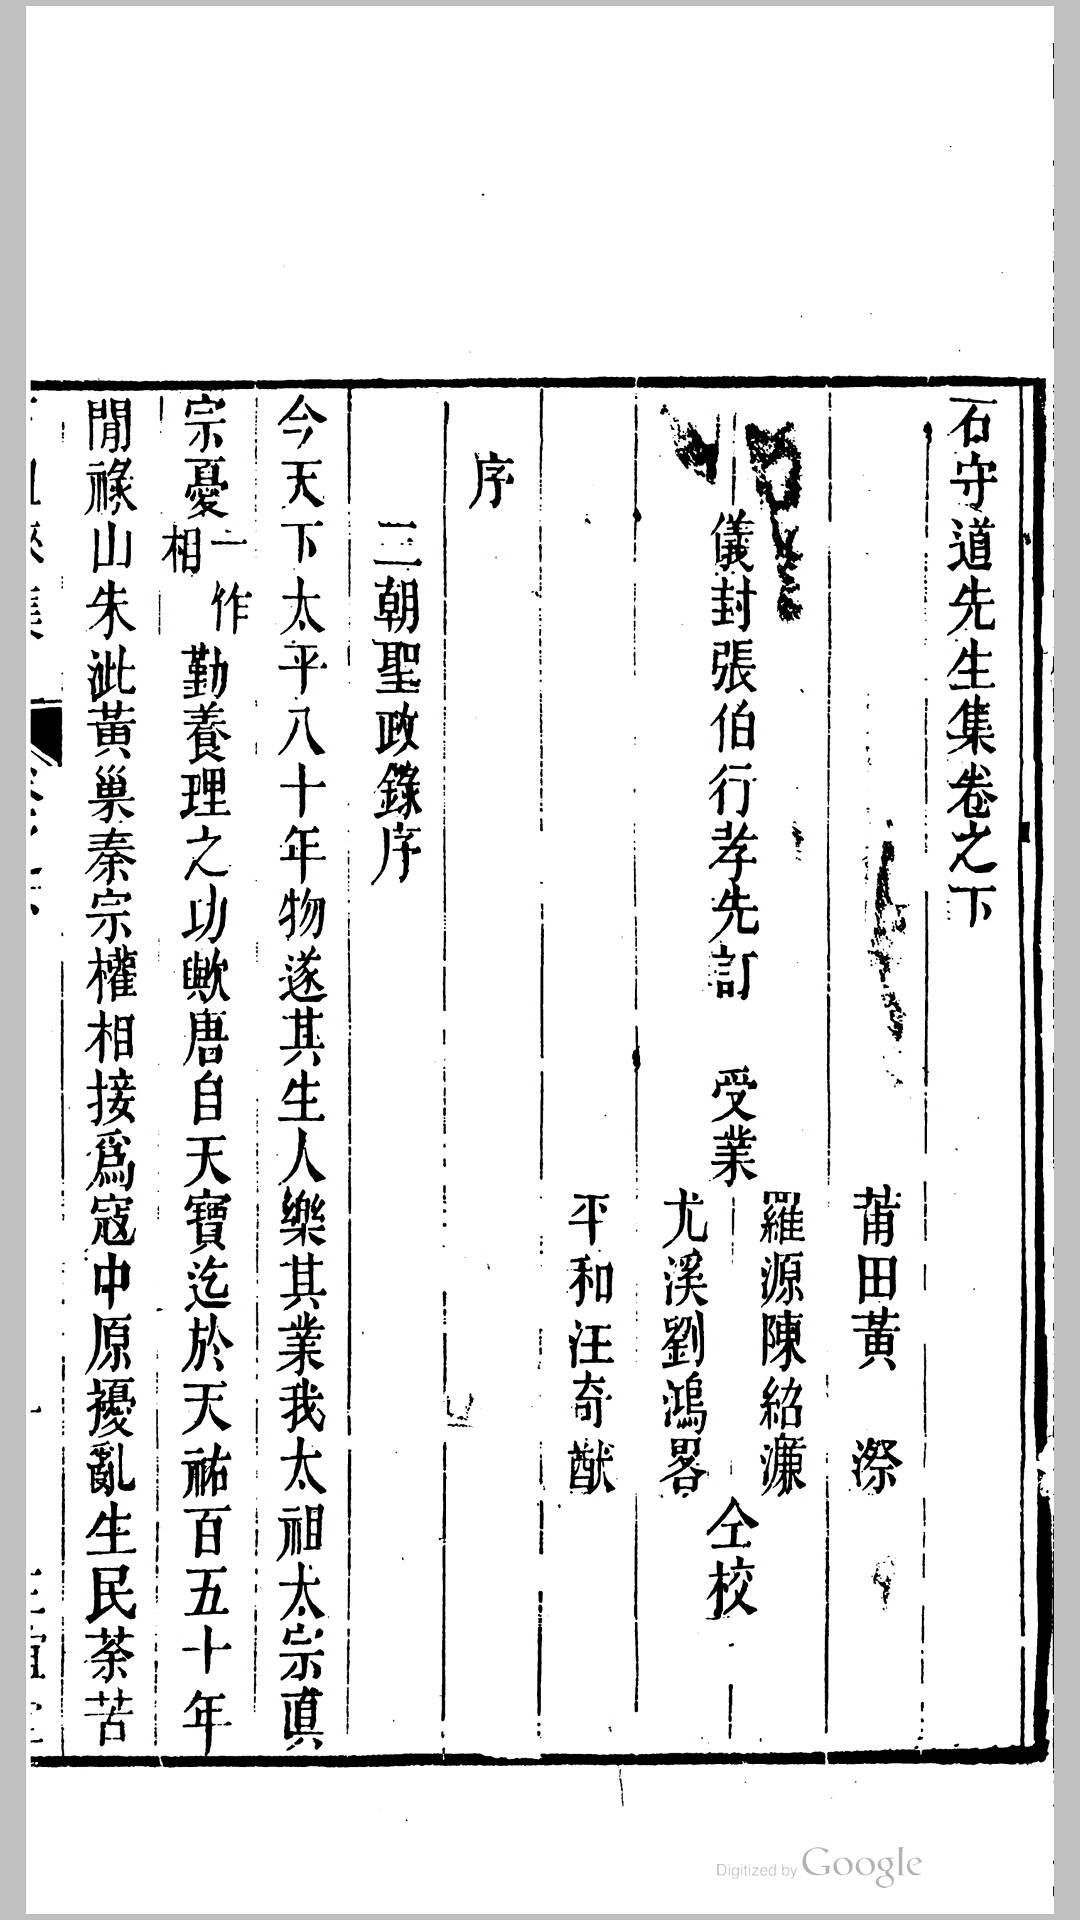 石守道先生集卷之下
莆田黃　漈
儀封張伯行孝先訂　受業
羅源陳紹濂
尤溪劉鴻畧
仝校
平和汪奇猷
序
三朝聖政錄序
今天下太平八十年物遂其生人樂其業我太祖太宗眞
宗憂一作相勤養理之功歟唐自天寶迄於天祐百五十年
閒祿山朱泚黃巢秦宗權相接爲寇中原擾亂生民荼苦
Digitized by Google